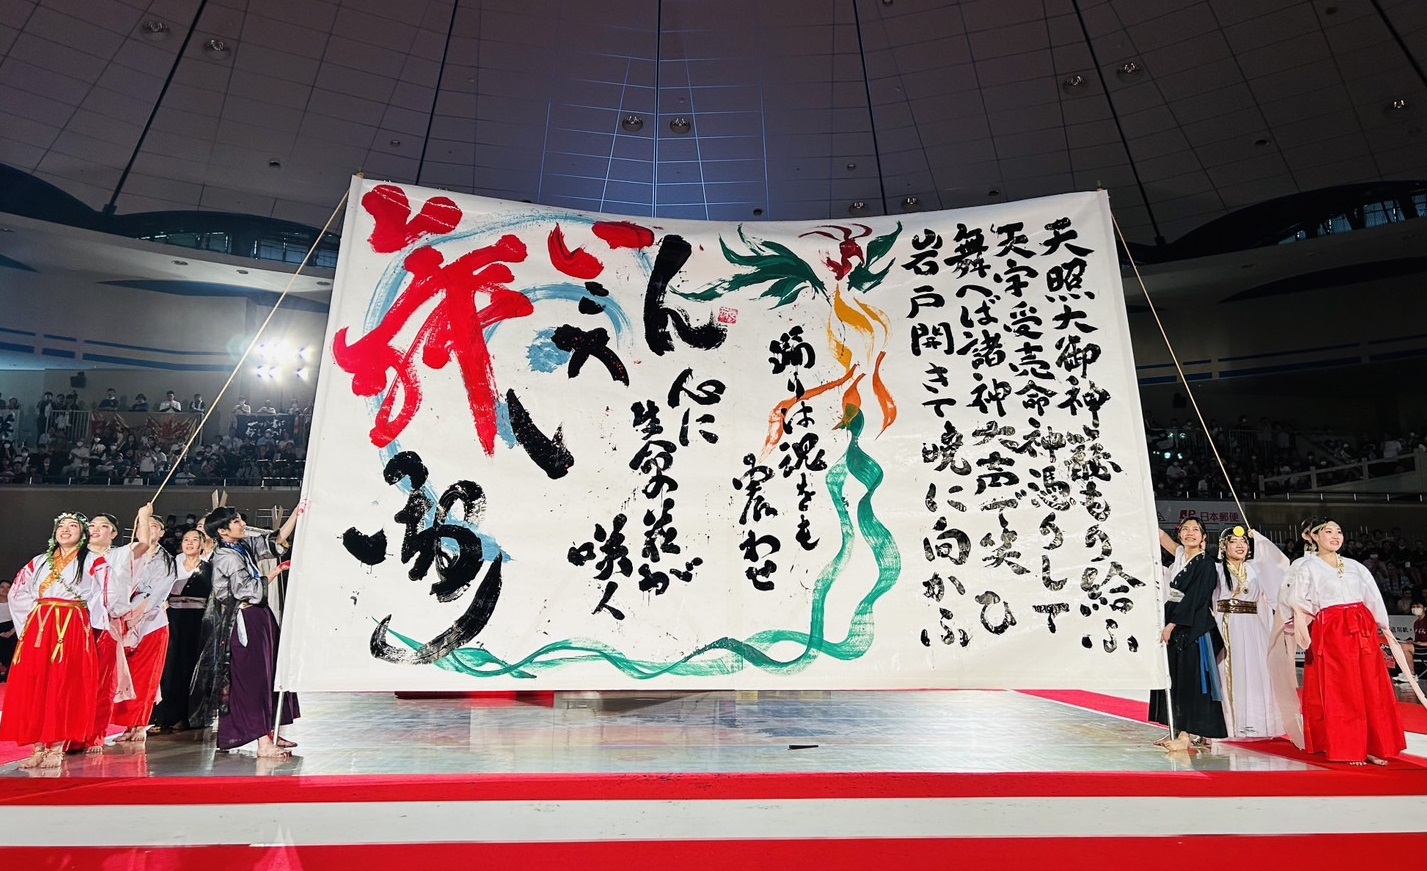 天照大御神もり給ふ
天宇受売命神憑りして
舞へば諸神大声で笑ひ
岩戸開きて暁に向かふ
踊りは魂をも
震わせ
心に
生命の花が
咲く
日本郵便